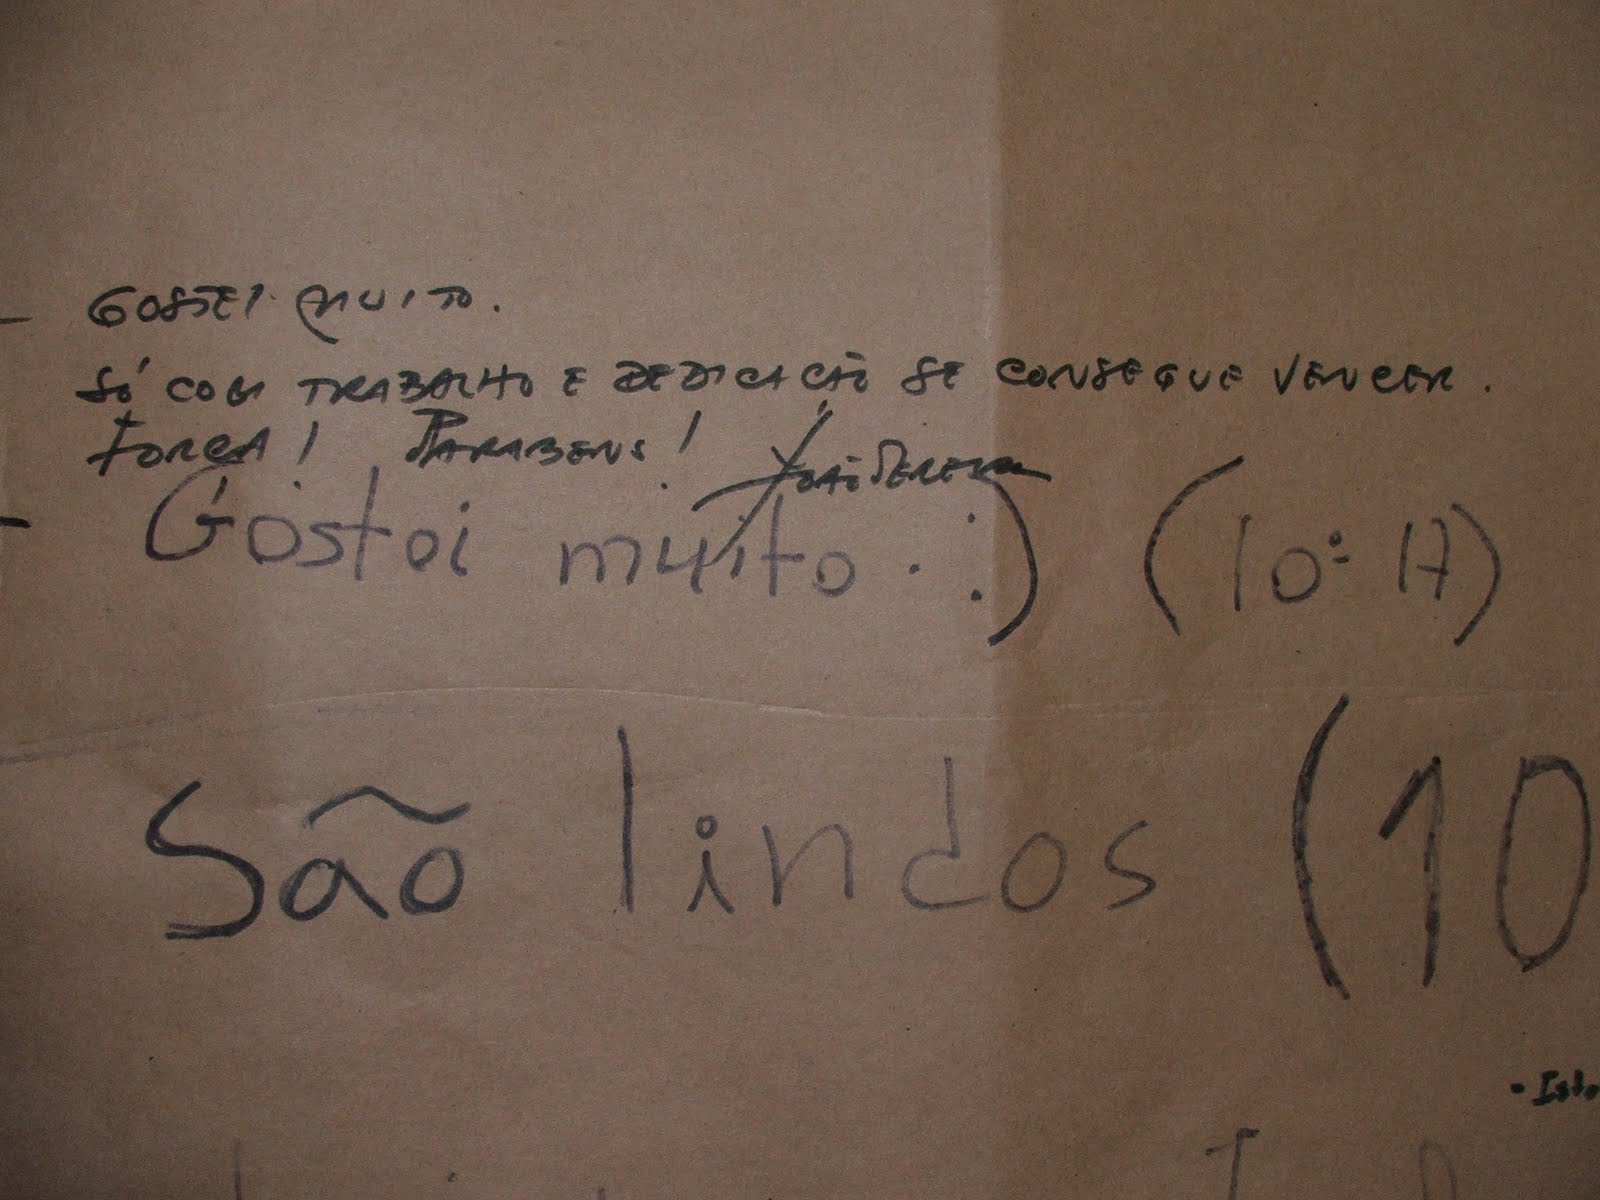 - GOSTEI MUITO.
SÓ COM TRABALHO E DEDICAÇÃO SE CONSEGUE VENCER.
FORÇA! PARABENS! João Pereira
- Gostei muito. :) (10º A)
São lindos (10